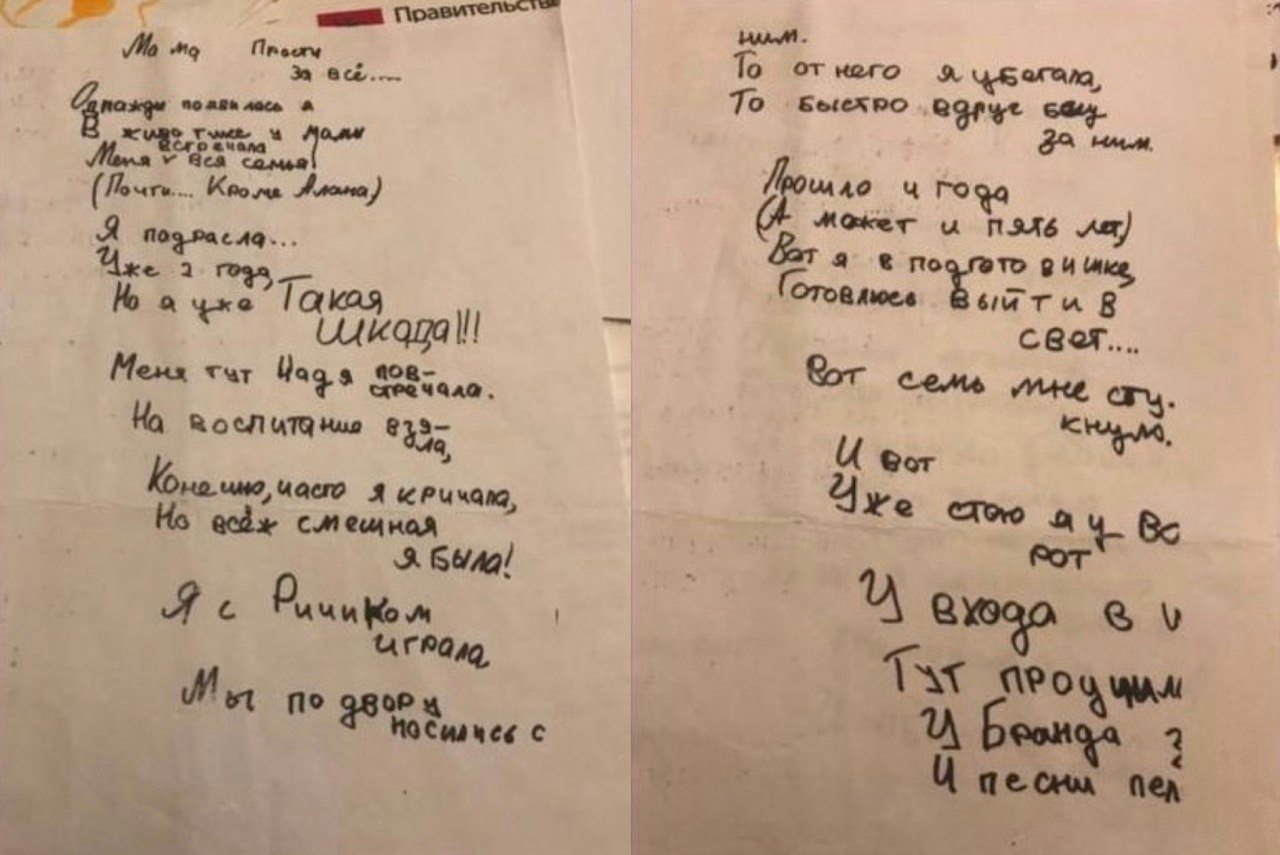 Правительств
Мама Прости
за всё....
Однажды появилась я
В животике у мамы
встречала
Меня v вся семья!
(Почти.... Кроме Алана)
Я подрасла...
Уже 2 года,
Но я уже Такая
шкода!!!
Меня тут Надя пов-
стречала.
На воспитание взя-
ла,
Конешно, часто я кричала,
Но всёж смешная
я была!
Я с Ричиком
играла,
Мы по двору
носились с
ним.
То от него я убегала,
То быстро вдруг бегу
за ним.
Прошло 4 года
(А может и пять лет,)
Вот я в подготовишке,
Готовлюсь выйти в
свет....
Вот семь мне сту.
кнуло.
И вот
Уже стою я у во
рот
У входа в
Тут проучим
У Бранда
И песни пел